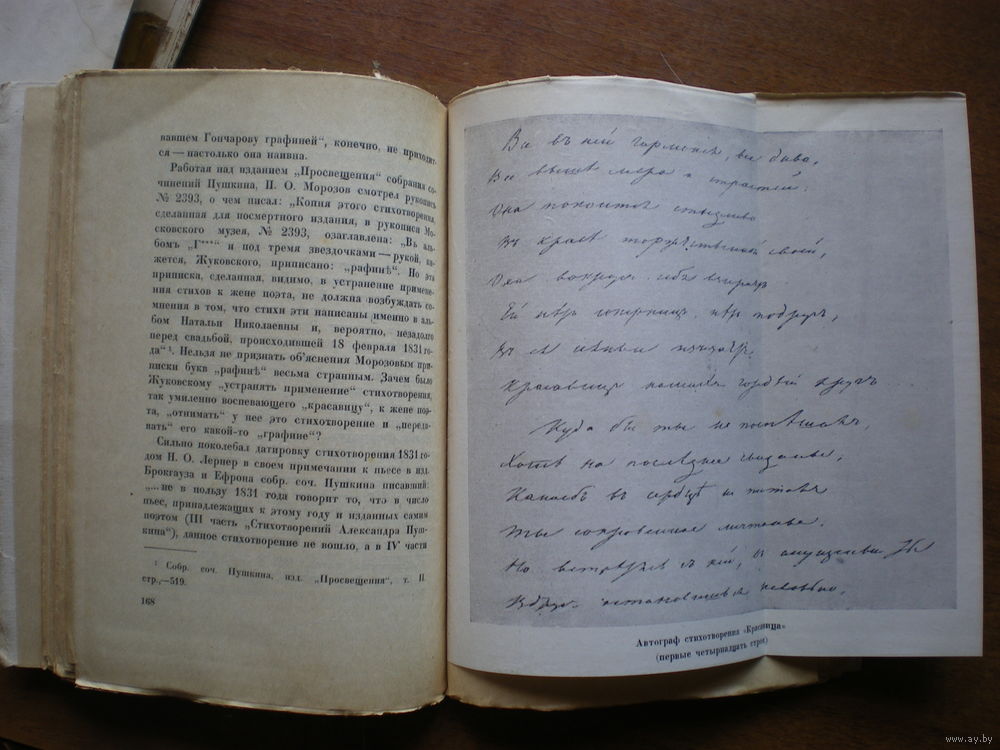 вавшем Гончарову графиней“, конечно, не приходит-
ся — настолько она наивна.
Работая над изданием „Просвещения“ собрания со-
чинений Пушкина, П. О. Морозов смотрел рукопись
№ 2393, о чем писал: „Копия этого стихотворения,
сделанная для посмертного издания, в рукописи Мо-
сковского музея, № 2393, озаглавлена: „Въ аль-
бомъ „Г***“ и под тремя звездочками — рукой, ка-
жется, Жуковского, приписано: „рафинѣ“. Но эта
приписка, сделанная, видимо, в устранение примене-
ния стихов к жене поэта, не должна возбуждать со-
мнения в том, что стихи эти написаны именно в аль-
бом Натальи Николаевны и, вероятно, незадолго
перед свадьбой, происходившей 18 февраля 1831 го-
да“¹. Нельзя не признать об'яснения Морозовым при-
писки букв „рафинѣ“ весьма странным. Зачем было
Жуковскому „устранять применение“ стихотворения,
так умиленно воспевающего „красавицу“, к жене поэ-
та, „отнимать“ у нее это стихотворение и „переда-
вать“ его какой-то „графине“?
Сильно поколебал датировку стихотворения 1831 го-
дом Н. О. Лернер в своем примечании к пьесе в изд.
Брокгауза и Ефрона собр. соч. Пушкина писавший:
„...не в пользу 1831 года говорит то, что в число
пьес, принадлежащих к этому году и изданных самим
поэтом (III часть „Стихотворений Александра Пуш-
кина“), данное стихотворение не вошло, а в IV части
¹ Собр. соч. Пушкина, изд. „Просвещения“, т. II.
стр.—519.
168
Все въ ней гармонія, все диво,
Все выше міра и страстей:
Она покоится стыдливо
Въ красѣ торжественной своей;
Она вокругъ себя взираетъ
Ей нѣтъ соперницъ, нѣтъ подругъ;
Красавицъ нашихъ бледный кругъ
Куда бы ты не поспѣшалъ,
Хотя на любовное свиданье,
Какое бъ въ сердцѣ ни питалъ
Ты сокровенное мечтанье.
Но встрѣтясь съ ней, смущенный, ты
Вдругъ остановишься невольно,
Автограф стихотворения «Красавица»
(первые четырнадцать строк)
www.ay.by